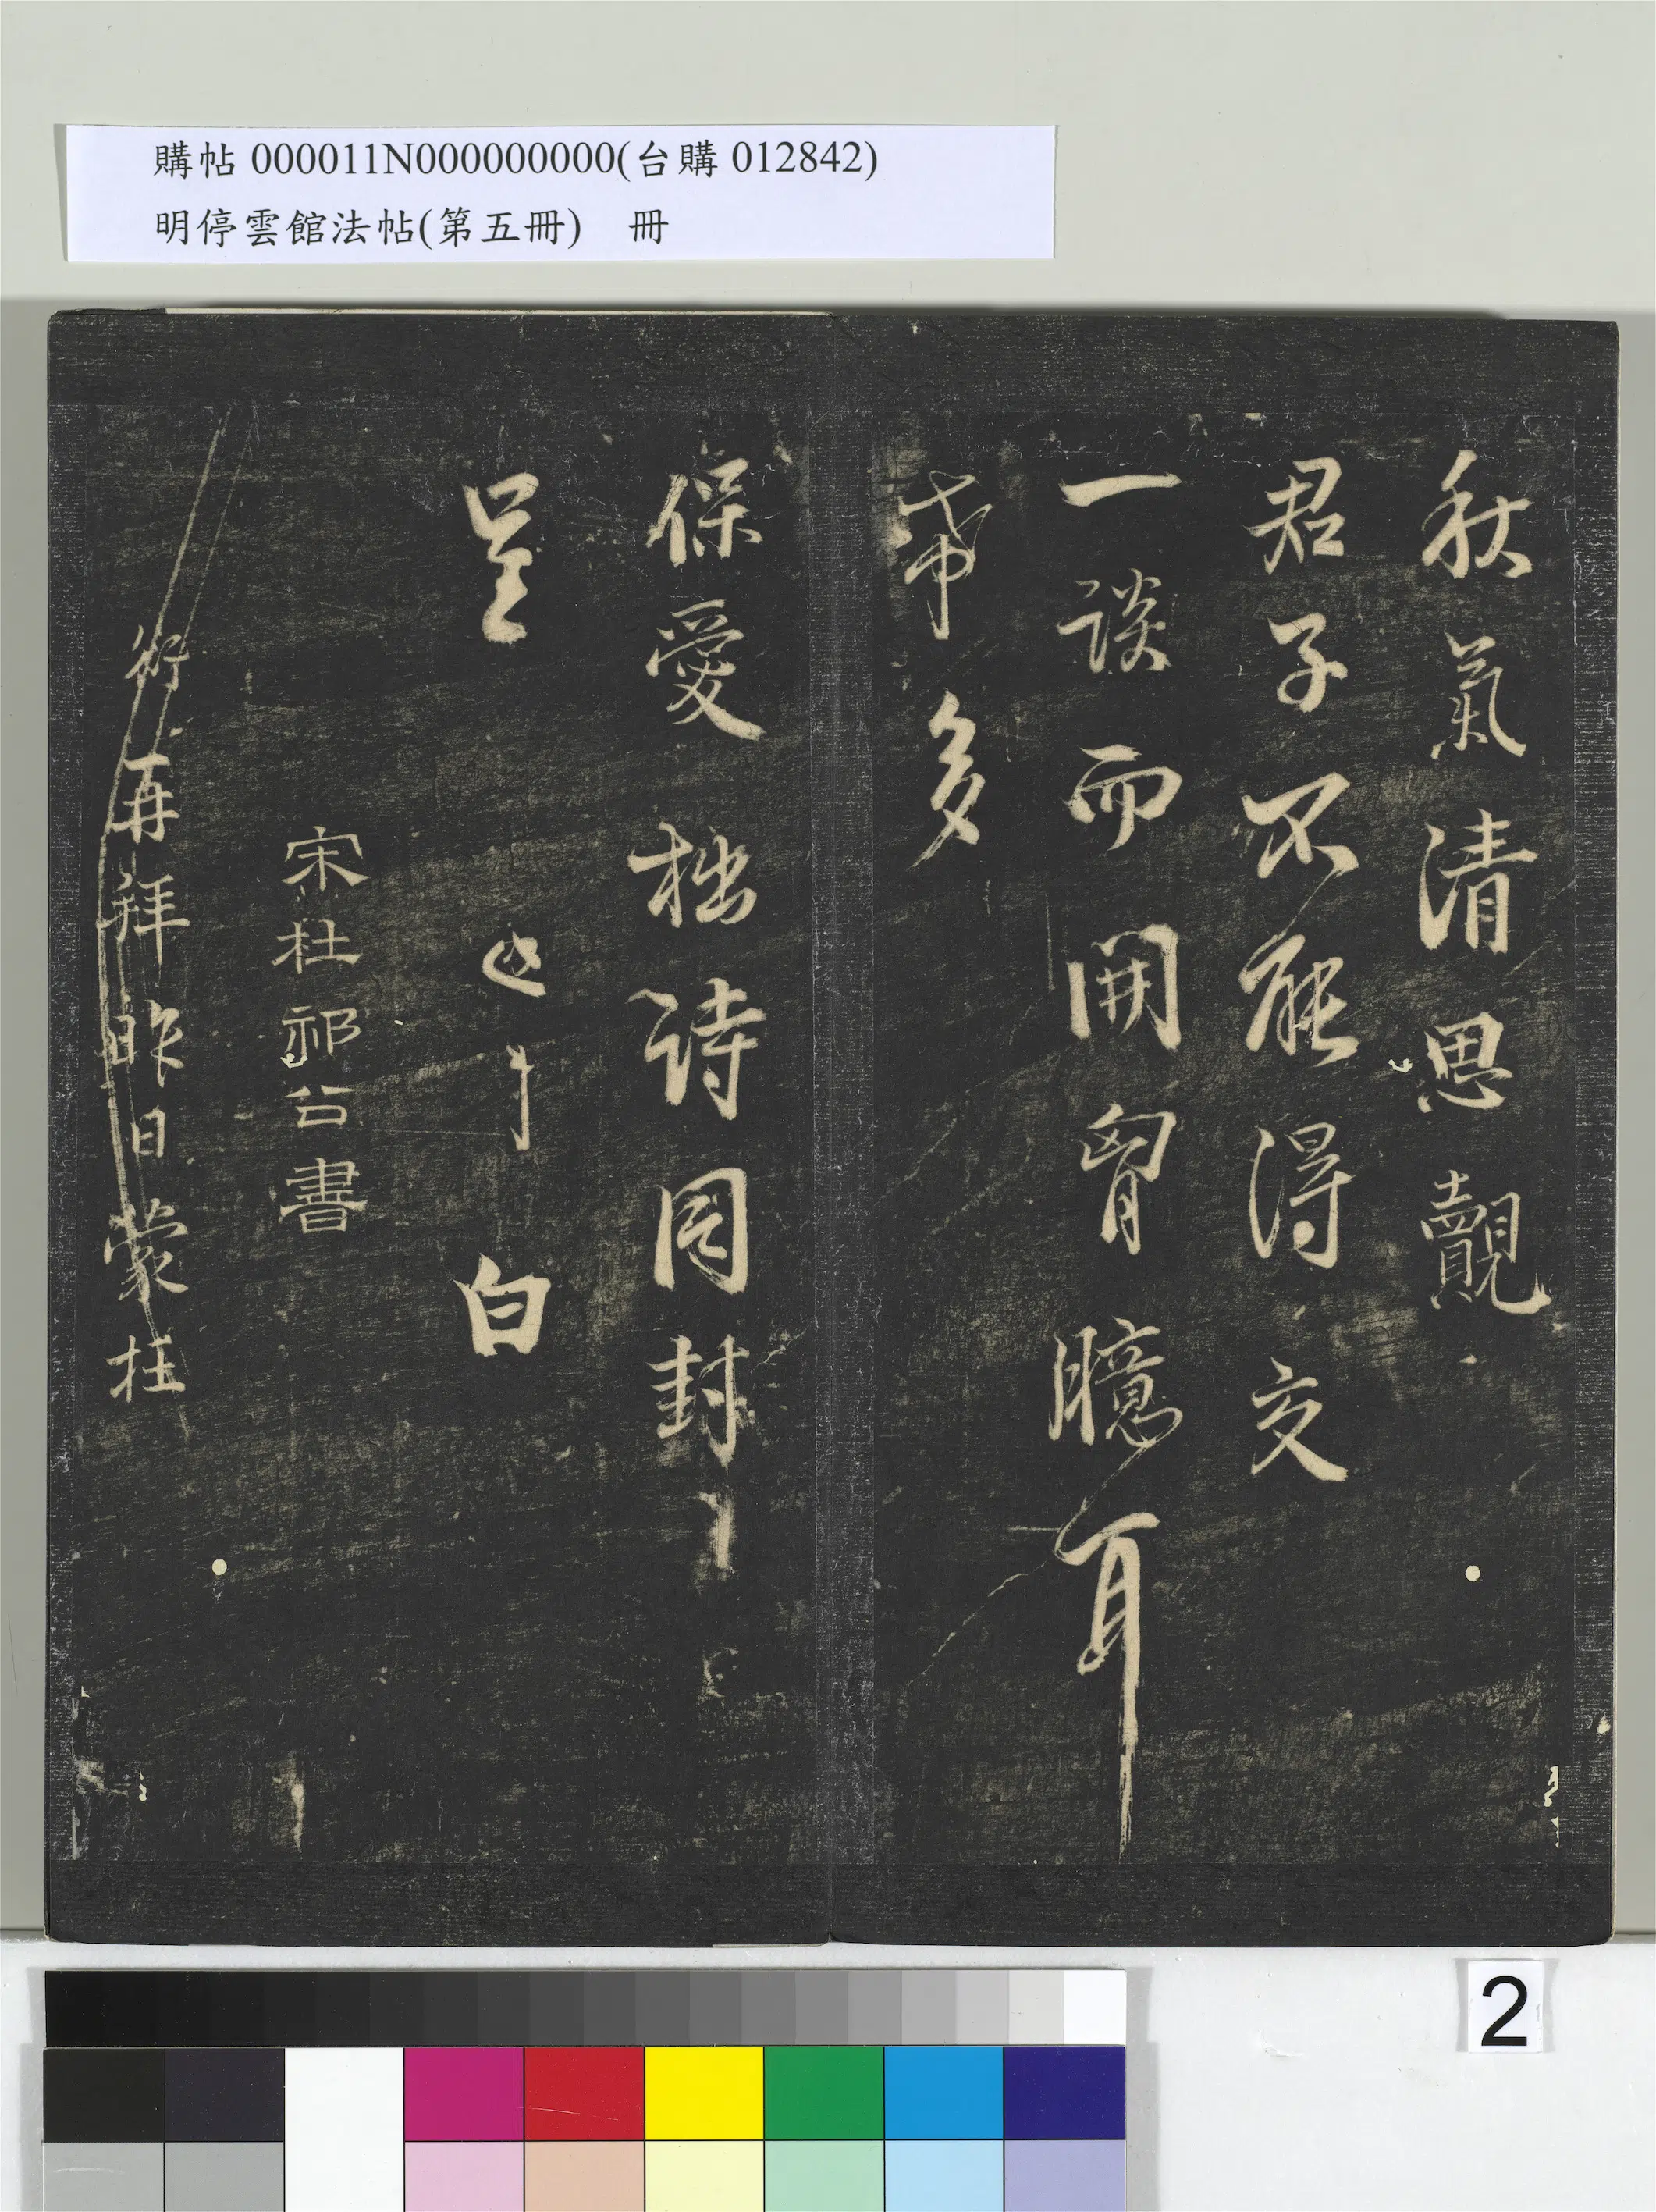 購帖 000011N000000000(台購 012842)
明停雲館法帖(第五冊) 冊
秋氣清思覿
君子不能得交
一談而開胷臆耳
希多
保愛拙詩同封
呈
白
宋杜祁公書
衍再拜昨日蒙枉
2